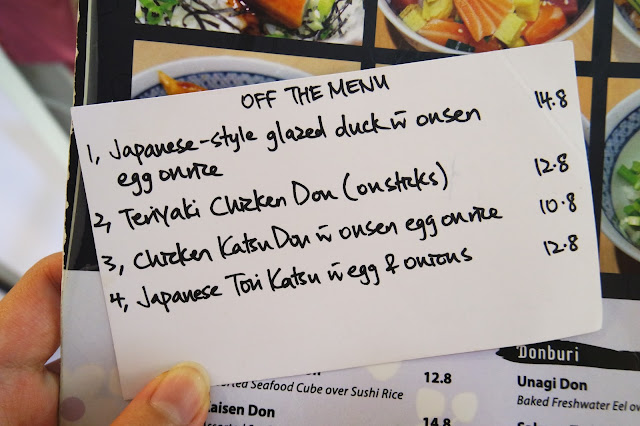 OFF THE MENU
1, Japanese-style glazed duck w̄ onsen 14.8
egg on rice
2, Teriyaki Chicken Don (on sticks) 12.8
3, Chicken Katsu Don w̄ onsen egg on rice 10.8
4, Japanese Tori Katsu w̄ egg & onions 12.8
Donburi
Seafood Cube over Sushi Rice 12.8
Unagi Don
Baked Freshwater Eel
Kaisen Don 14.8